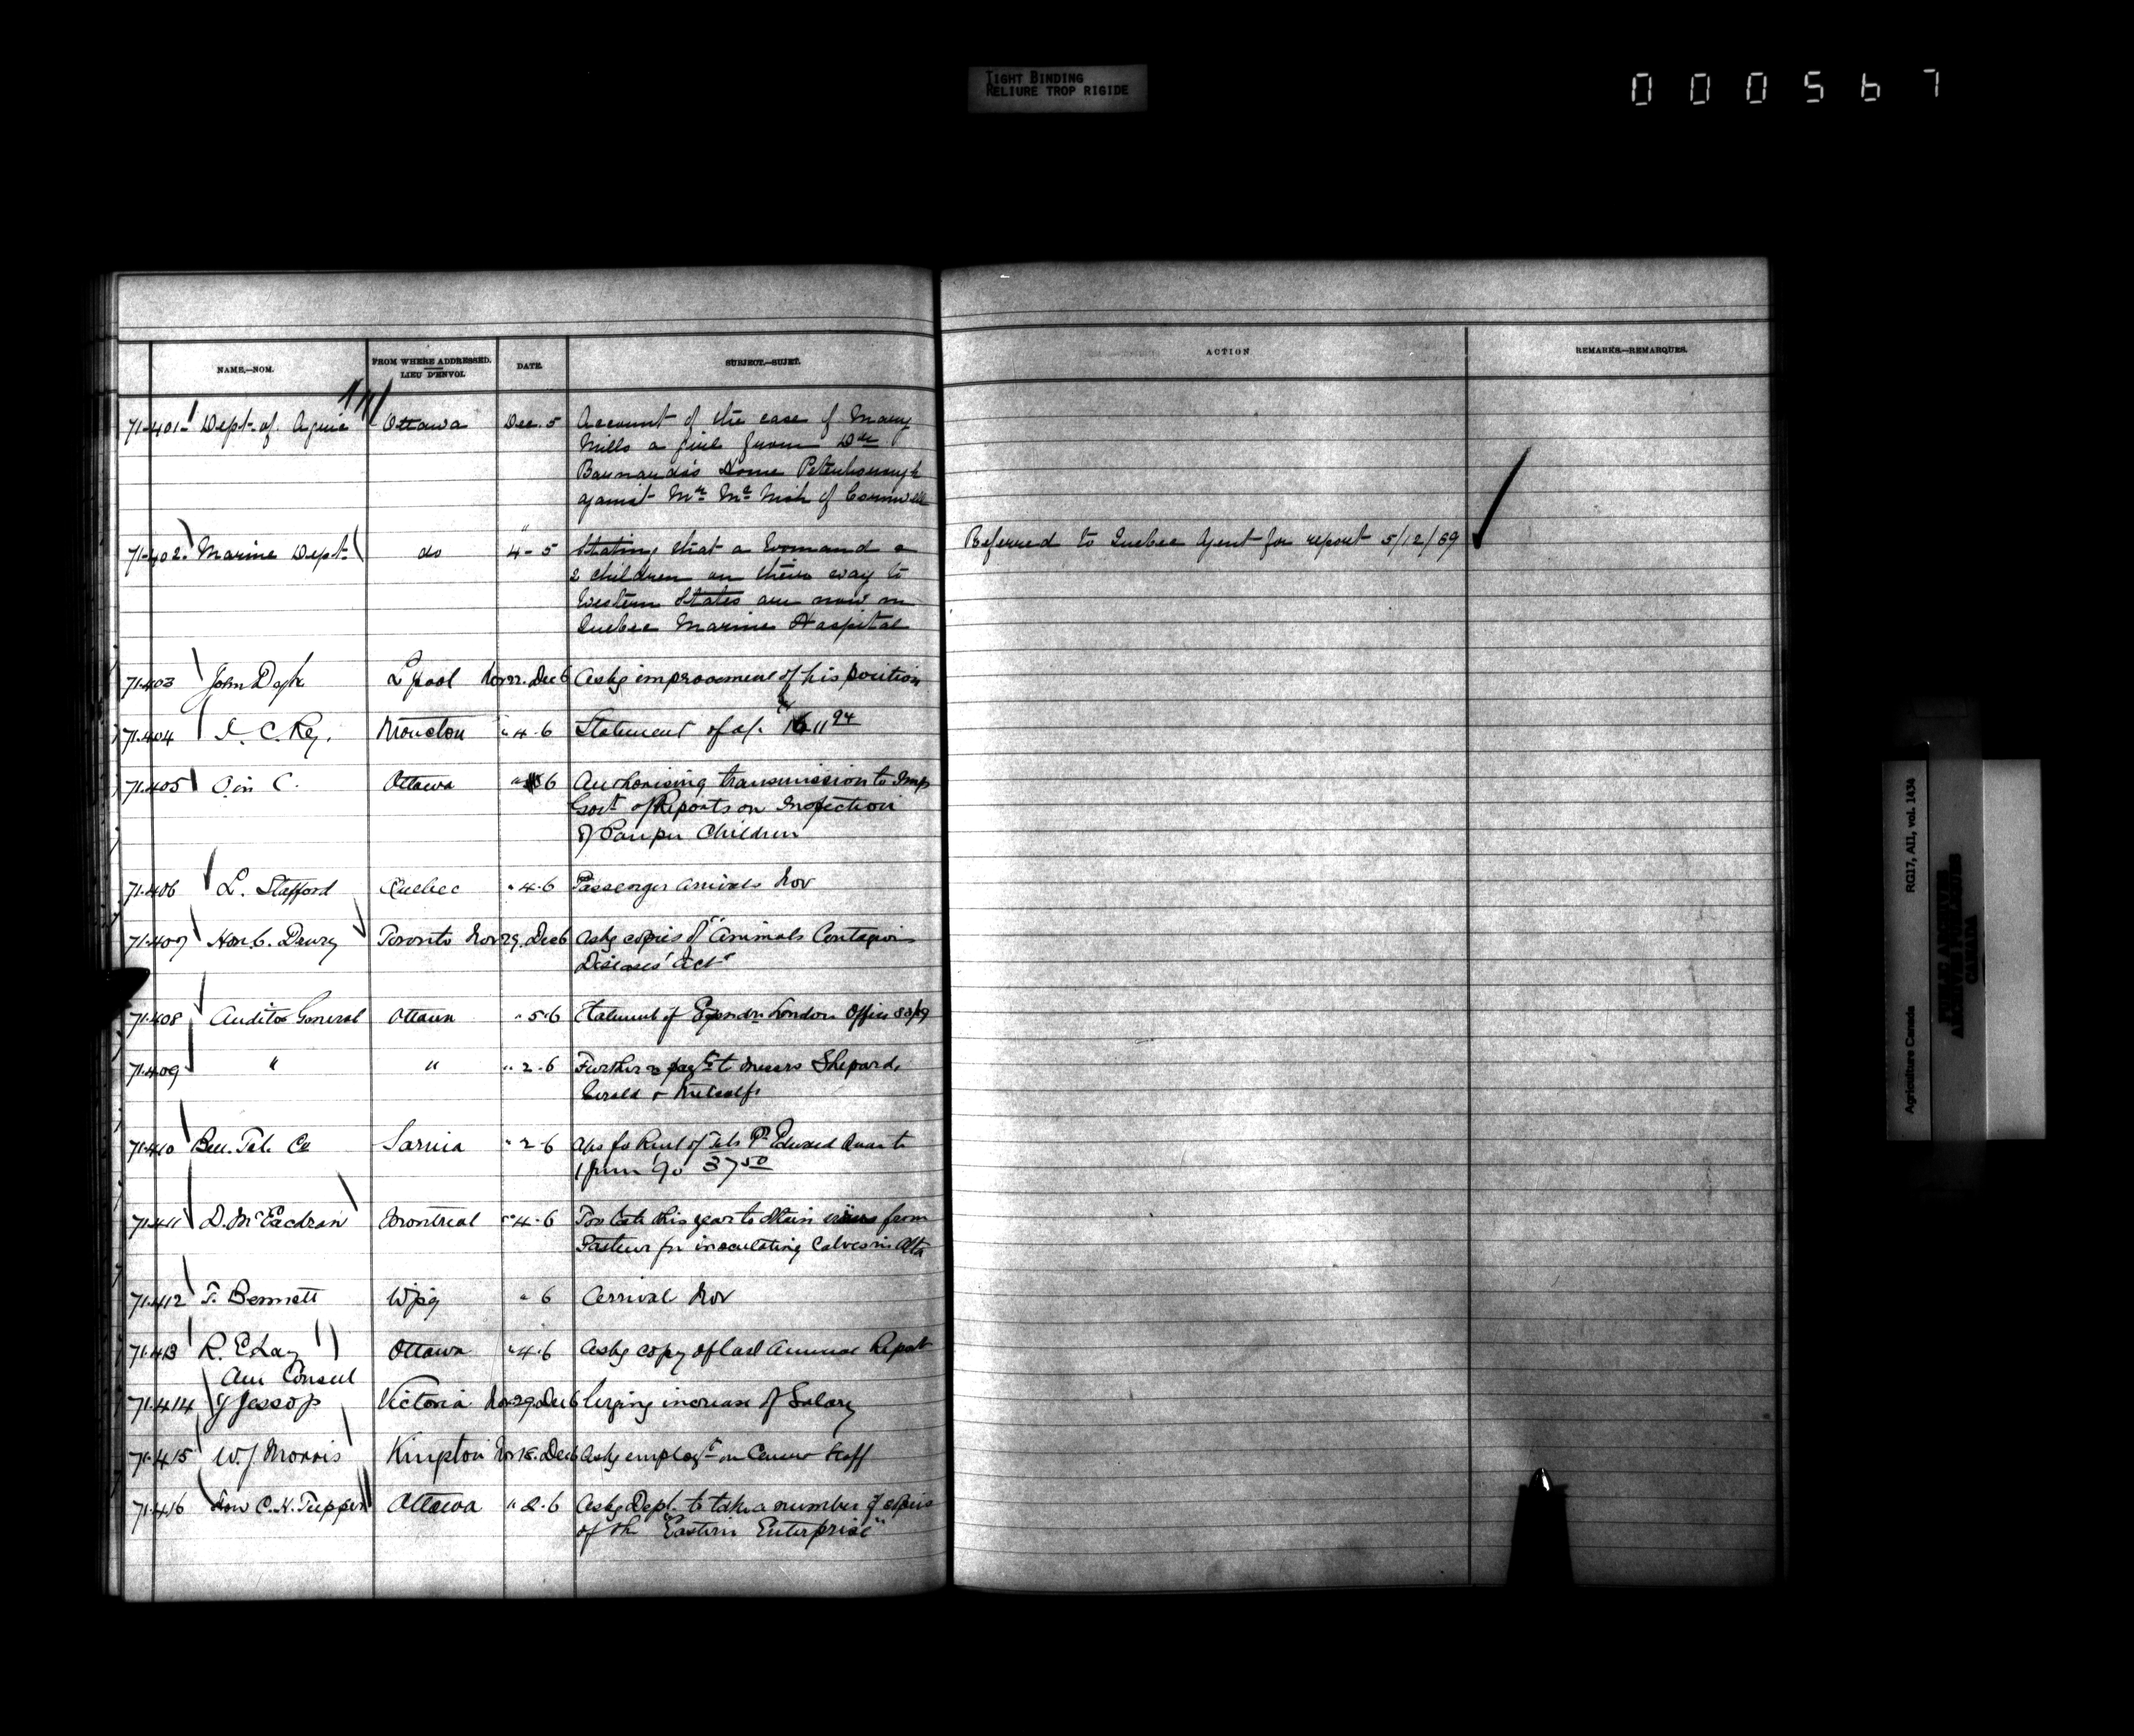 TIGHT BINDING
RELIURE TROP RIGIDE
000567
NAME.—NOM.
FROM WHERE ADDRESSED.
LIEU D'ENVOI.
DATE.
SUBJECT.—SUJET.
ACTION
REMARKS.—REMARQUES.
71401 Dept. of Agric Ottawa Dec. 5 Account of the case of Mary
Mills a girl from Dr
Barnardo's Home Peterborough
against Mr Mc Nish of Cornwall
71402. Marine Dept. do 4-5 Stating that a woman and
2 children on their way to
Western States are now in
Quebec Marine Hospital
Referred to Quebec Agent for report 5/12/89
71403 John Dyke L'pool Nov 22. Dec 6 Askg improvement of his position
71404 I. C. Ry. Moncton " 4.6 Statement of a/c
71405 O in C. Ottawa 6 Authorising transmission to Imp
Govt of Reports on Inspection
of Pauper Children
71406 L. Stafford Quebec " 4.6 Passenger arrivals Nov
71407 Hon C. Drury Toronto Nov 29. Dec 6 Askg copies of "Animals Contagious
Diseases Act"
71408 Auditor General Ottawa " 5.6 Statement of London Office 88/89
71409 " " " 2.6 Further payt to Messrs Shepard,
& Metcalfe
71410 Bell Tel. Co Sarnia " 2.6 Rent of Tels Pt Edward
90 37.50
71411 D. McEachran Montreal " 4.6 Too late this year to obtain from
Pasteur for inoculating Calves in Alta
71412 T. Bennett Wpg " 6 Arrival Nov
71413 R. E. Lay Ottawa " 4.6 Askg copy of last Annual Report
Am Consul
71414 Jessop Victoria Nov 29 Dec 6 Urging increase of Salary
71415 W. J. Morris Nov 18. Dec 6 Askg employt on Census Staff
71416 Hon C. H. Tupper Ottawa " 2.6 Askg Dept. to take a number of copies
of the "Eastern Enterprise"
RG17, AI1, vol. 1434
Agriculture Canada
PUBLIC ARCHIVES
ARCHIVES PUBLIQUES
CANADA